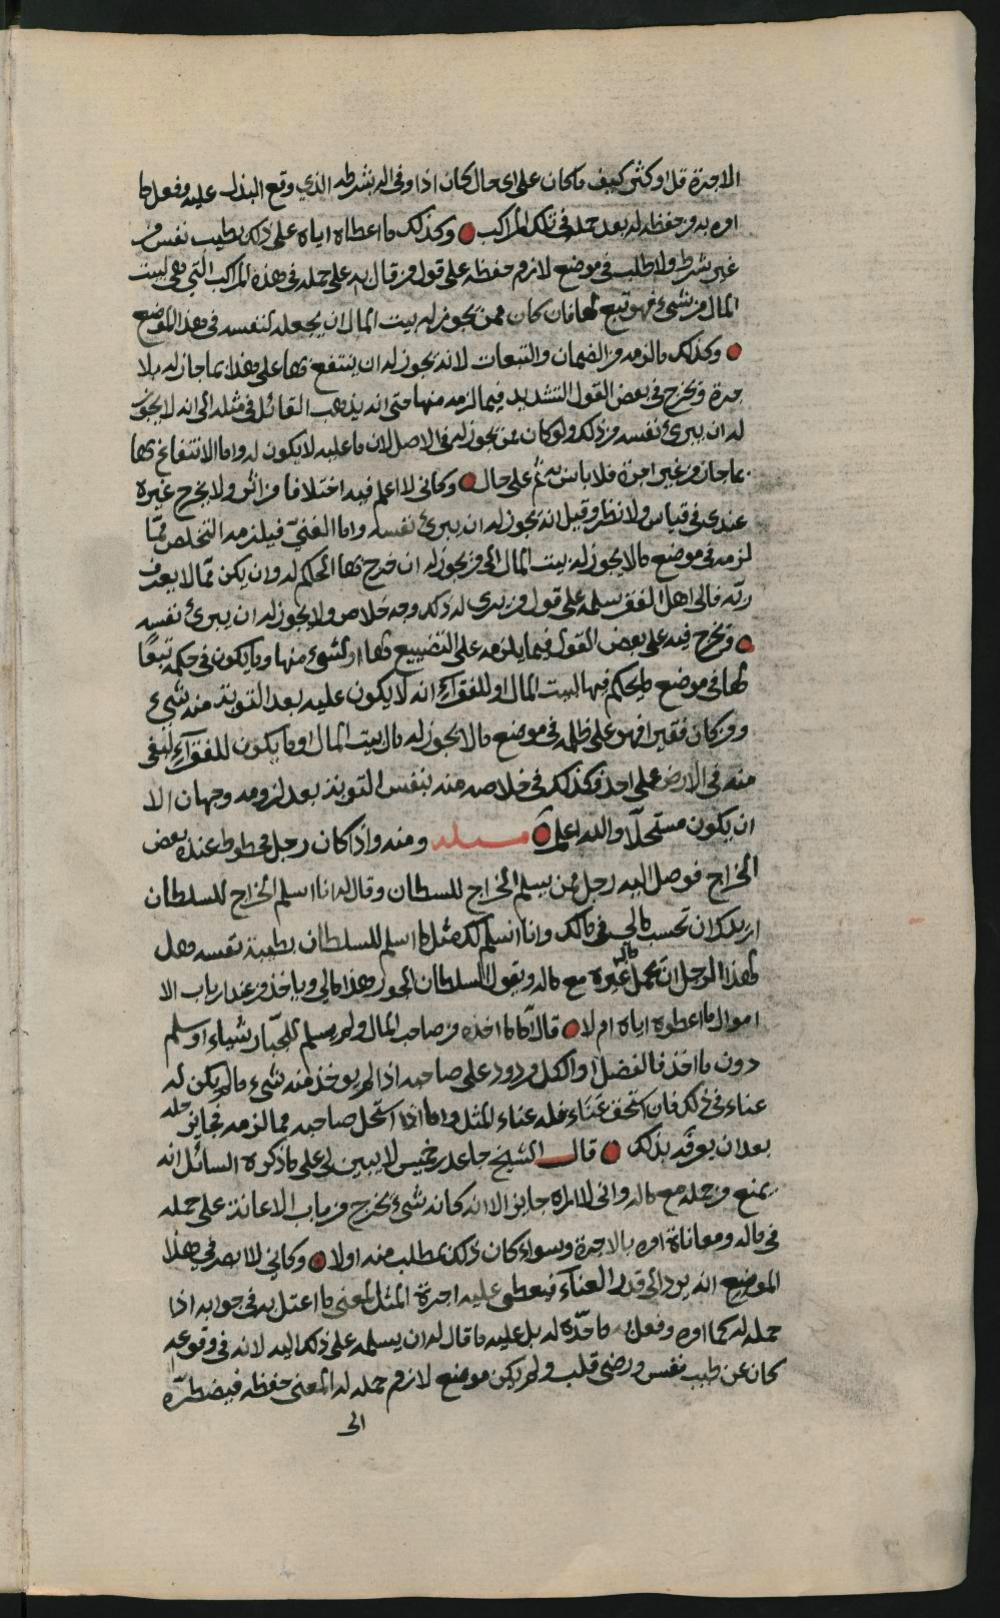 الاجرة قل او كثر كيف ما كان على اى حال كان اذا وفى اليه بشرطه الذي وقع البذل عليه وفعل ما
امره به من حفظه له بعد حمله فى تلك المراكب وكذلك ما اعطاه اياه على ذلك بطيب نفس من
غير شرط ولا طلب فى موضع لازم حفظه على قول من قال به على حمله فى هذه المراكب التي هى لبيت
المال من شىء فهو تبع لها فان كان ممن يجوز له بيت المال ان يجعله لنفسه فى هذا الموضع
وكذلك ما لزمه من الضمان والتبعات لانه يجوز له ان ينتفع بها على هذا بما جاز له بلا
جرة ويخرج فى بعض القول التشديد فيما لزمه منها حتى انه يذهب القائل فى مثله الى انه لا يجوز
له ان يبرئ نفسه من ذلك ولو كان ممن يجوز له فى الاصل لان ما عليه لا يكون له واما الانتفاع بها
بما جاز من غير اجرة فلا باس به على حال وكانى لا اعلم فيه اختلافا من اثر ولا يخرج غيره
عندى فى قياس ولا نظر وقيل انه يجوز له ان يبرئ نفسه واما الغنىّ فيلزمه التخلص ممّا
لزمه فى موضع ما لا يجوز له بيت المال الى من يجوز له ان خرج بها الحكم له وان يكن ممّا لا يعرف
ربّه فالى اهل الفقر يسلمه على قول من يرى له ذلك وجه خلاص ولا يجوز له ان يبرئ نفسه
ويخرج فيه على بعض القول فيما يلزمه على التضييع لها او لشىء منها وما يكون فى حكمه تبعًا
لها فى موضع ما يحكم فيها لبيت المال او للفقرآء انه لا يكون عليه بعد التوبة منه شىء
ومن كان فقيرا فهو على ظلمه فى موضع ما لا يجوز له مال بيت المال او ما يكون للفقرآء لنفى
منه فى الارض على احد وكذلك فى خلاصه منه بنفس التوبة بعد لزومه وجهان الا
ان يكون مستحلّا والله اعلم مسئلة ومنه واذا كان رجل محطوط عنده بعض
الخراج فوصل اليه رجل ممن يسلم الخراج للسطان وقال له انا اسلم الخراج للسلطان
اريدك ان تحسب مالى فى مالك وانا اسلم لك مثل ما اسلم للسلطان بطيبة نفسه وهل
لهذا الرجل ان يحمل مال غيره مع ماله ويقول للسلطان الجور هذا مالي وياخذ من عند ارباب الا
اموال ما اعطوه اياه ام لا قال امّا ما اخذه من صاحب المال ولم يسلم للجبّار شياء او سلم
دون ما اخذ فالفضل او الكل مردود على صاحبه اذا لم يوخذ منه شىء ما لم يكن له
عناء فى ذلك فان استحق عَنَاء فله عناء المثل واما اذا استحل صاحبه مما لزمه فجايز حله
بعد ان يعرّفه بذلك قال الشيخ جاعد بن خميس لا يبين لى على ما ذكره السائل انه
يمنع من حمله مع ماله وانى لاراه جايز الا انه كانه شىء يخرج من باب الاعانة على حمله
فى ماله ومعاناة امره بالاجرة وسواء كان ذلك بمطلب منه او لا وكانى لا ابصر فى هذا
الموضع انه يرد الى قدر العنآء فيعطى عليه اجرة المثل لمعنى ما اعتل به فى جوابه اذا
حمله له كما امره وفعل به ما حدّه له بل عليه ما قال له ان يسلمه على ذلك اليه لانه فى وقوعه
كان عن طيب نفس ورضى قلب ولم يكن موضع لازم حمله له لمعنى حفظه فيضطرّه
الى